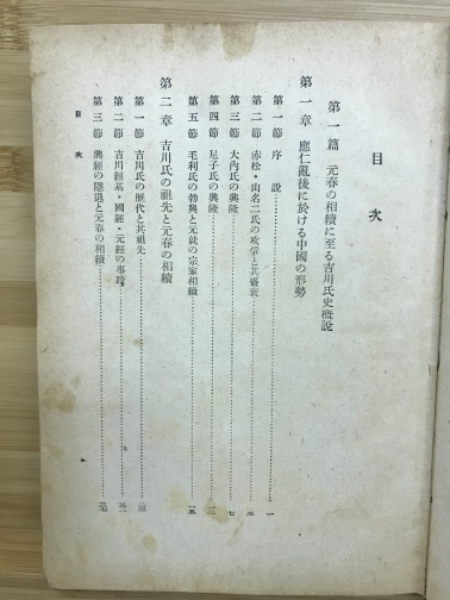 目次
第一篇 元春の相續に至る吉川氏史概說
第一章 應仁亂後に於ける中國の形勢
第一節 序說……一
第二節 赤松・山名二氏の政爭と其盛衰……三
第三節 大內氏の興隆……七
第四節 尼子氏の興隆……一二
第五節 毛利氏の勃興と元就の宗家相續……一五
第二章 吉川氏の祖先と元春の相續
第一節 吉川氏の歷代と其祖先……
第二節 吉川經基・國經・元經の事蹟……
第三節 興經の隱退と元春の相續……
目次